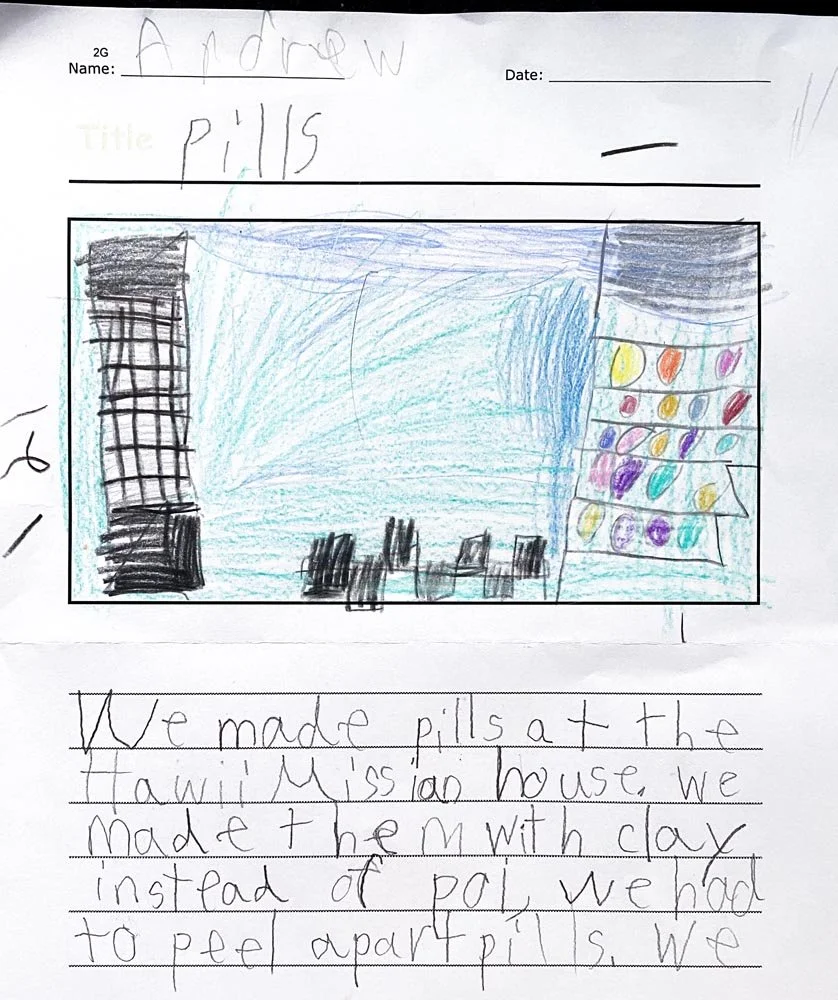 2G
Name: Andrew
Date:
Title pills
We made pills at the
Hawii Missian house. we
made them with clay
instead of poi, we had
to peel apart pills. We